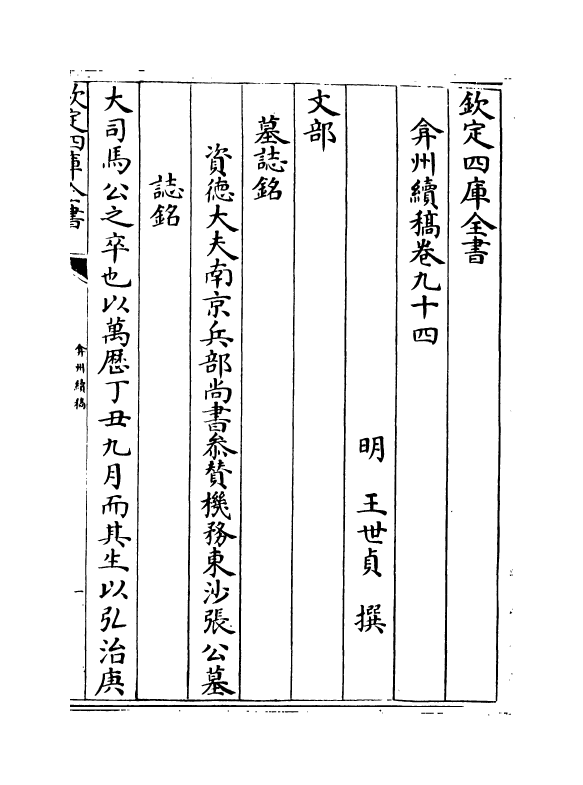 欽定四庫全書
弇州續稿卷九十四
明　王世貞　撰
文部
墓誌銘
資德大夫南京兵部尚書叅贊機務東沙張公墓
誌銘
大司馬公之卒也以萬厯丁丑九月而其生以弘治庚
欽定四庫全書
弇州續稿
一